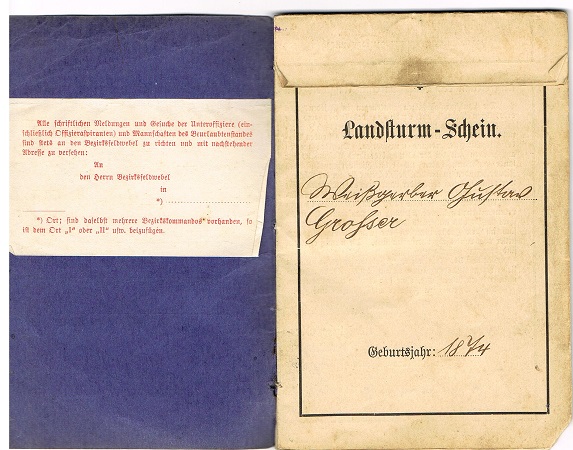 Alle schriftlichen Meldungen und Gesuche der Unteroffiziere (ein-
schließlich Offizieraspiranten) und Mannschaften des Beurlaubtenstandes
sind stets an den Bezirksfeldwebel zu richten und mit nachstehender
Adresse zu versehen:
An
den Herrn Bezirksfeldwebel
in
*)
*) Ort; sind daselbst mehrere Bezirkskommandos vorhanden, so
ist dem Ort „I“ oder „II“ usw. beizufügen.
Landsturm-Schein.
Weißgerber Gustav
Grosser
Geburtsjahr: 1874